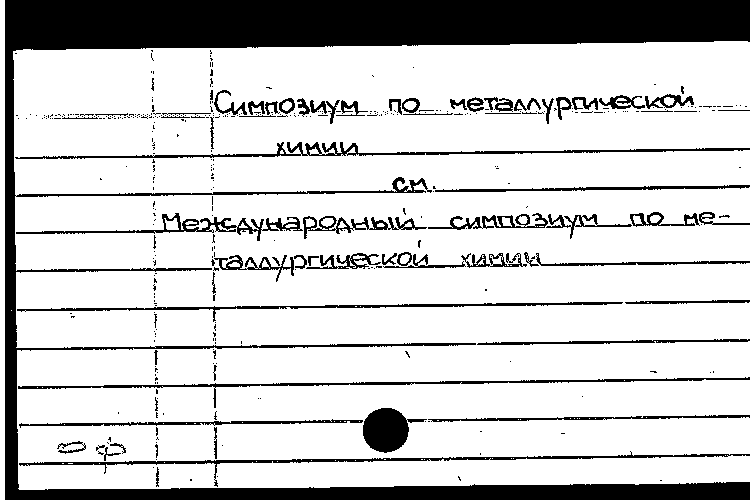 Симпозиум по металлургической
химии
см.
Международный симпозиум по ме-
таллургической химии